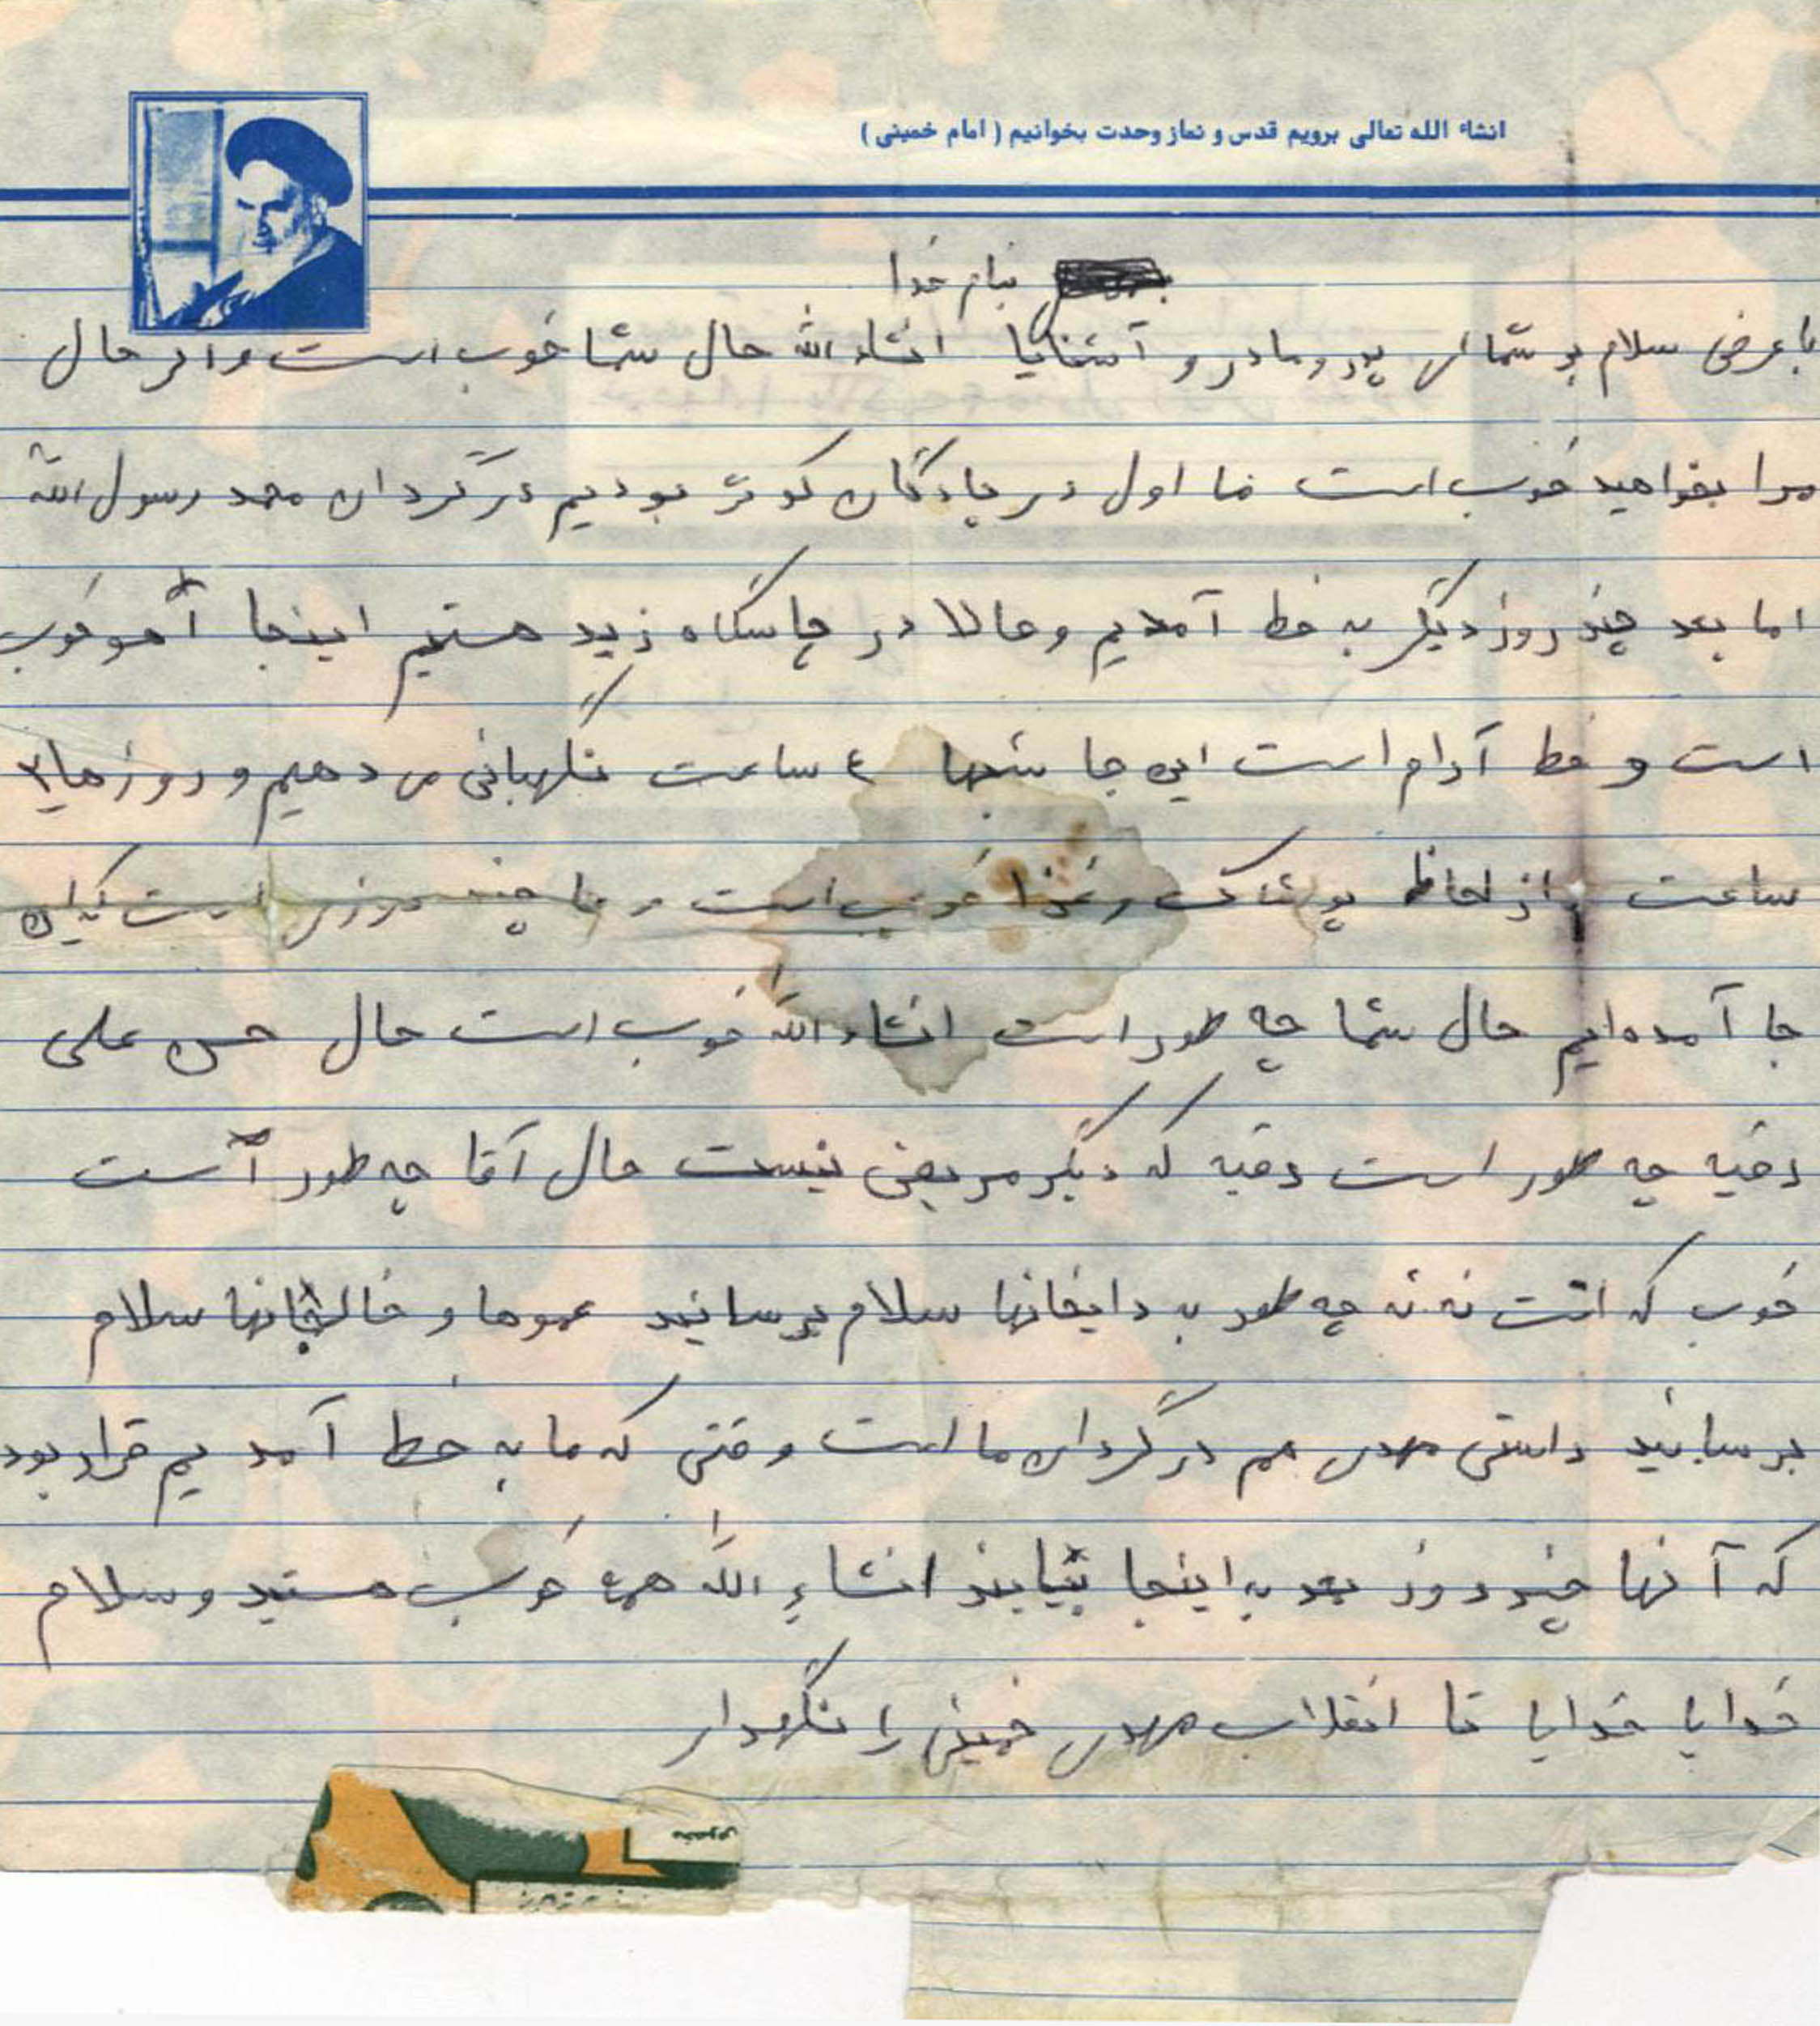 انشاء الله تعالی برویم قدس و نماز وحدت بخوانیم ( امام خمینی )
بنام خدا
با عرض سلام بر شما ای پدر و مادر و آشنایا انشاء الله حال شما خوب است و اگر حال
مرا بخواهید خوب است ما اول در پادگان کوثر بودیم در گردان محمد رسول الله
اما بعد چند روز دیگر به خط آمدیم و حالا در پاسگاه زید هستیم اینجا خوب
است و خط آرام است این جا شبها ٤ ساعت نگهبانی می دهیم و روزها ۲
ساعت از لحاظ پوشاک و غذا خوب است و ما چند روزی است که این
جا آمده ایم حال شما چه طور است انشاء الله خوب است حال حسن علی
رقیه چه طور است رقیه که دیگر مریض نیست حال آقا چه طور است
خوب که است ننه چه طور به دایخانها سلام برسانید عموها و خالخانها سلام
برسانید راستی مهدی هم در گردان ما است وقتی که ما به خط آمدیم قرار بود
که آنها چند روز بعد به اینجا بیایند انشاء الله همه خوب هستید و سلام
خدایا خدایا تا انقلاب مهدی خمینی را نگهدار